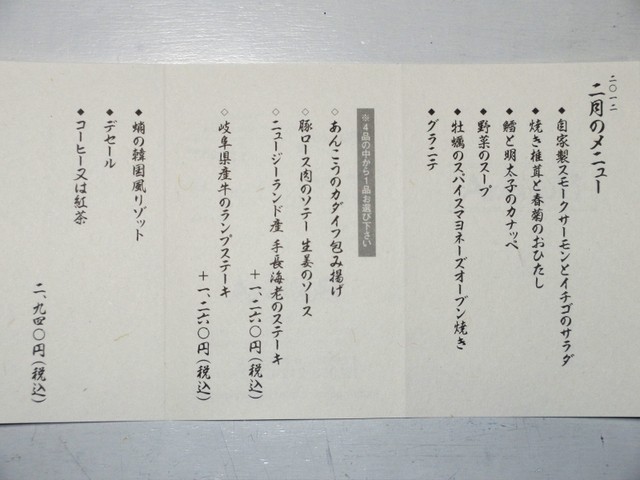 二〇一二
二月のメニュー
◆自家製スモークサーモンとイチゴのサラダ
◆焼き椎茸と春菊のおひたし
◆鱈と明太子のカナッペ
◆野菜のスープ
◆牡蠣のスパイスマヨネーズオーブン焼き
◆グラニテ
※4品の中から1品お選び下さい
◇あんこうのカダイフ包み揚げ
◇豚ロース肉のソテー 生姜のソース
◇ニュージーランド産 手長海老のステーキ
+一、二六〇円(税込)
◇岐阜県産牛のランプステーキ
+一、二六〇円(税込)
◆蛸の韓国風リゾット
◆デセール
◆コーヒー又は紅茶
二、九四〇円(税込)